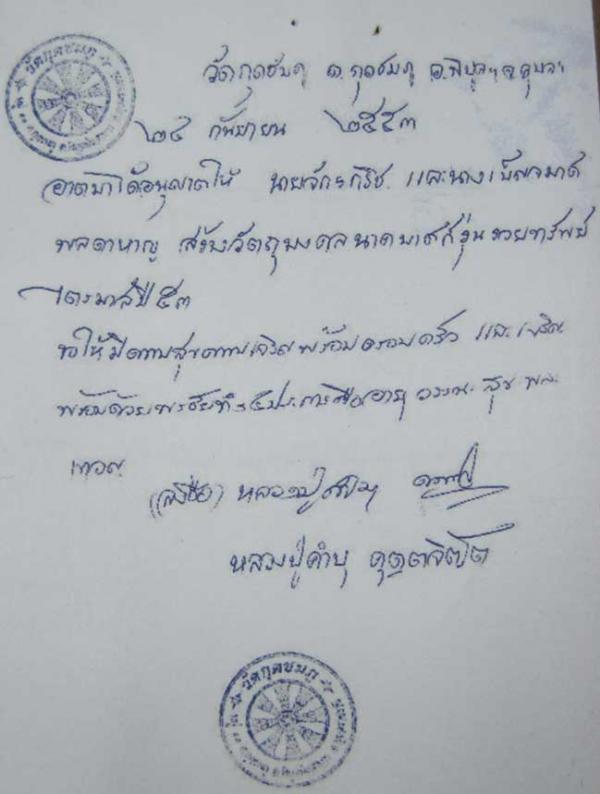 วัดกุดชมภู
วัดกุดชมภู ต.กุดชมภู อ.พิบูลฯ จ.อุบลฯ
๒๔ กันยายน ๒๕๕๓
อาตมาได้อนุญาตให้ นายจักรกริช และนางเบ็ญจมาศ
พลดาหาญ สร้างวัตถุมงคล นาคบาศก์รุ่นรวยทรัพย์
ไตรมาสปี ๕๓
ขอให้มีความสุขความเจริญ พร้อมครอบครัว และ เจริญ
พร้อมด้วยพรชัยทั้ง ๔ ประการคือ อายุ วรรณะ สุขะ พละ
เทอญ
(ลงชื่อ) หลวงปู่คำบุ
หลวงปู่คำบุ คุตฺตจิตฺโต
วัดกุดชมภู